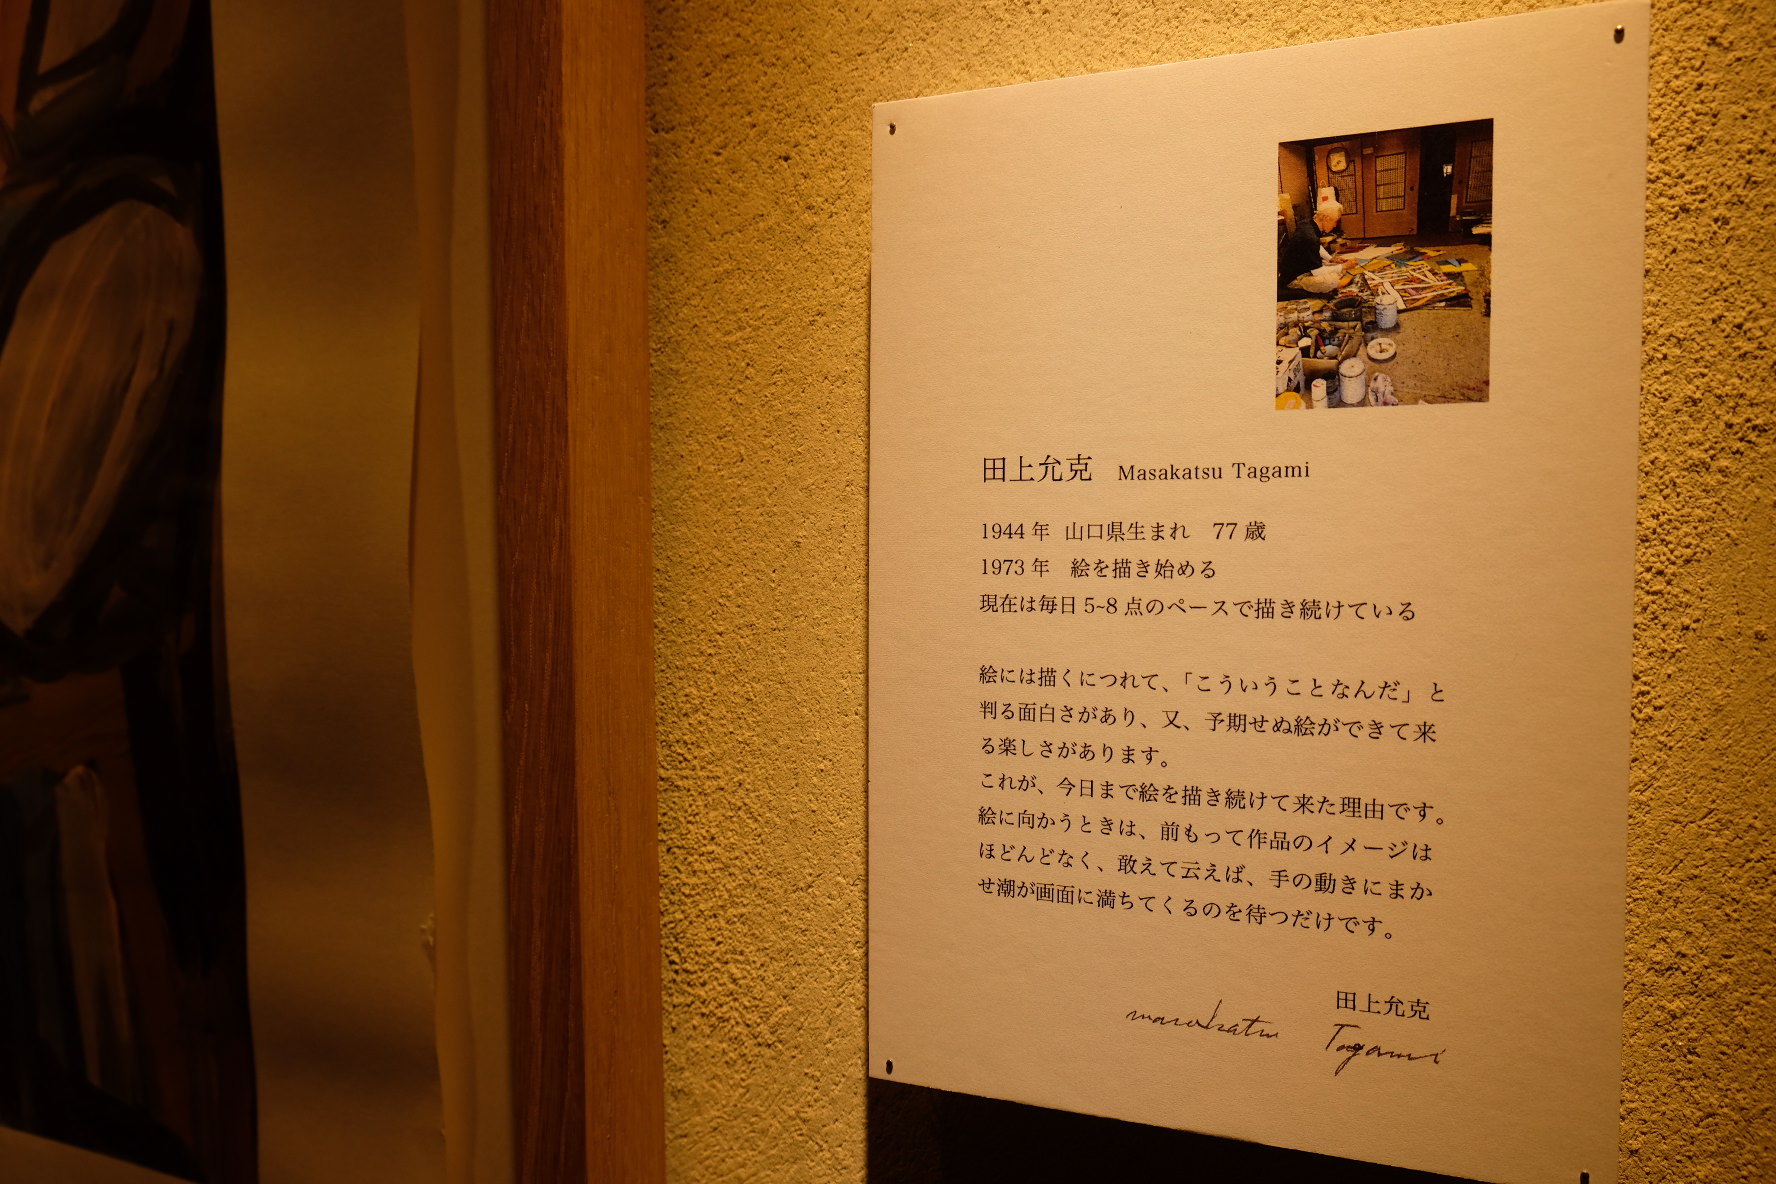 田上允克 Masakatsu Tagami
1944年 山口県生まれ 77歳
1973年 絵を描き始める
現在は毎日5~8点のペースで描き続けている
絵には描くにつれて、「こういうことなんだ」と
判る面白さがあり、又、予期せぬ絵ができて来
る楽しさがあります。
これが、今日まで絵を描き続けて来た理由です。
絵に向かうときは、前もって作品のイメージは
ほどんどなく、敢えて云えば、手の動きにまか
せ潮が画面に満ちてくるのを待つだけです。
田上允克
masakatsu Tagami